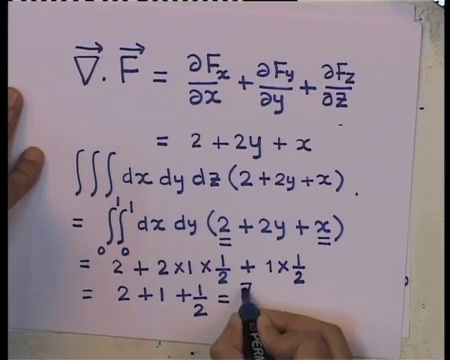 ∇⃗ . F⃗ = ∂Fx/∂x + ∂Fy/∂y + ∂Fz/∂z
= 2 + 2y + x
∫∫∫ dx dy dz (2 + 2y + x) .
= ∫₀¹∫₀¹ dx dy (2 + 2y + x)
= 2 + 2 × 1 × 1/2 + 1 × 1/2
= 2 + 1 + 1/2 =